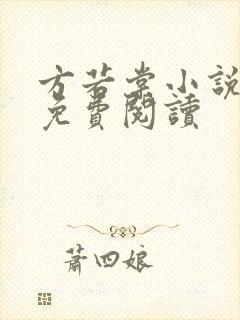 方若棠小說
免費閱讀
蕭四娘